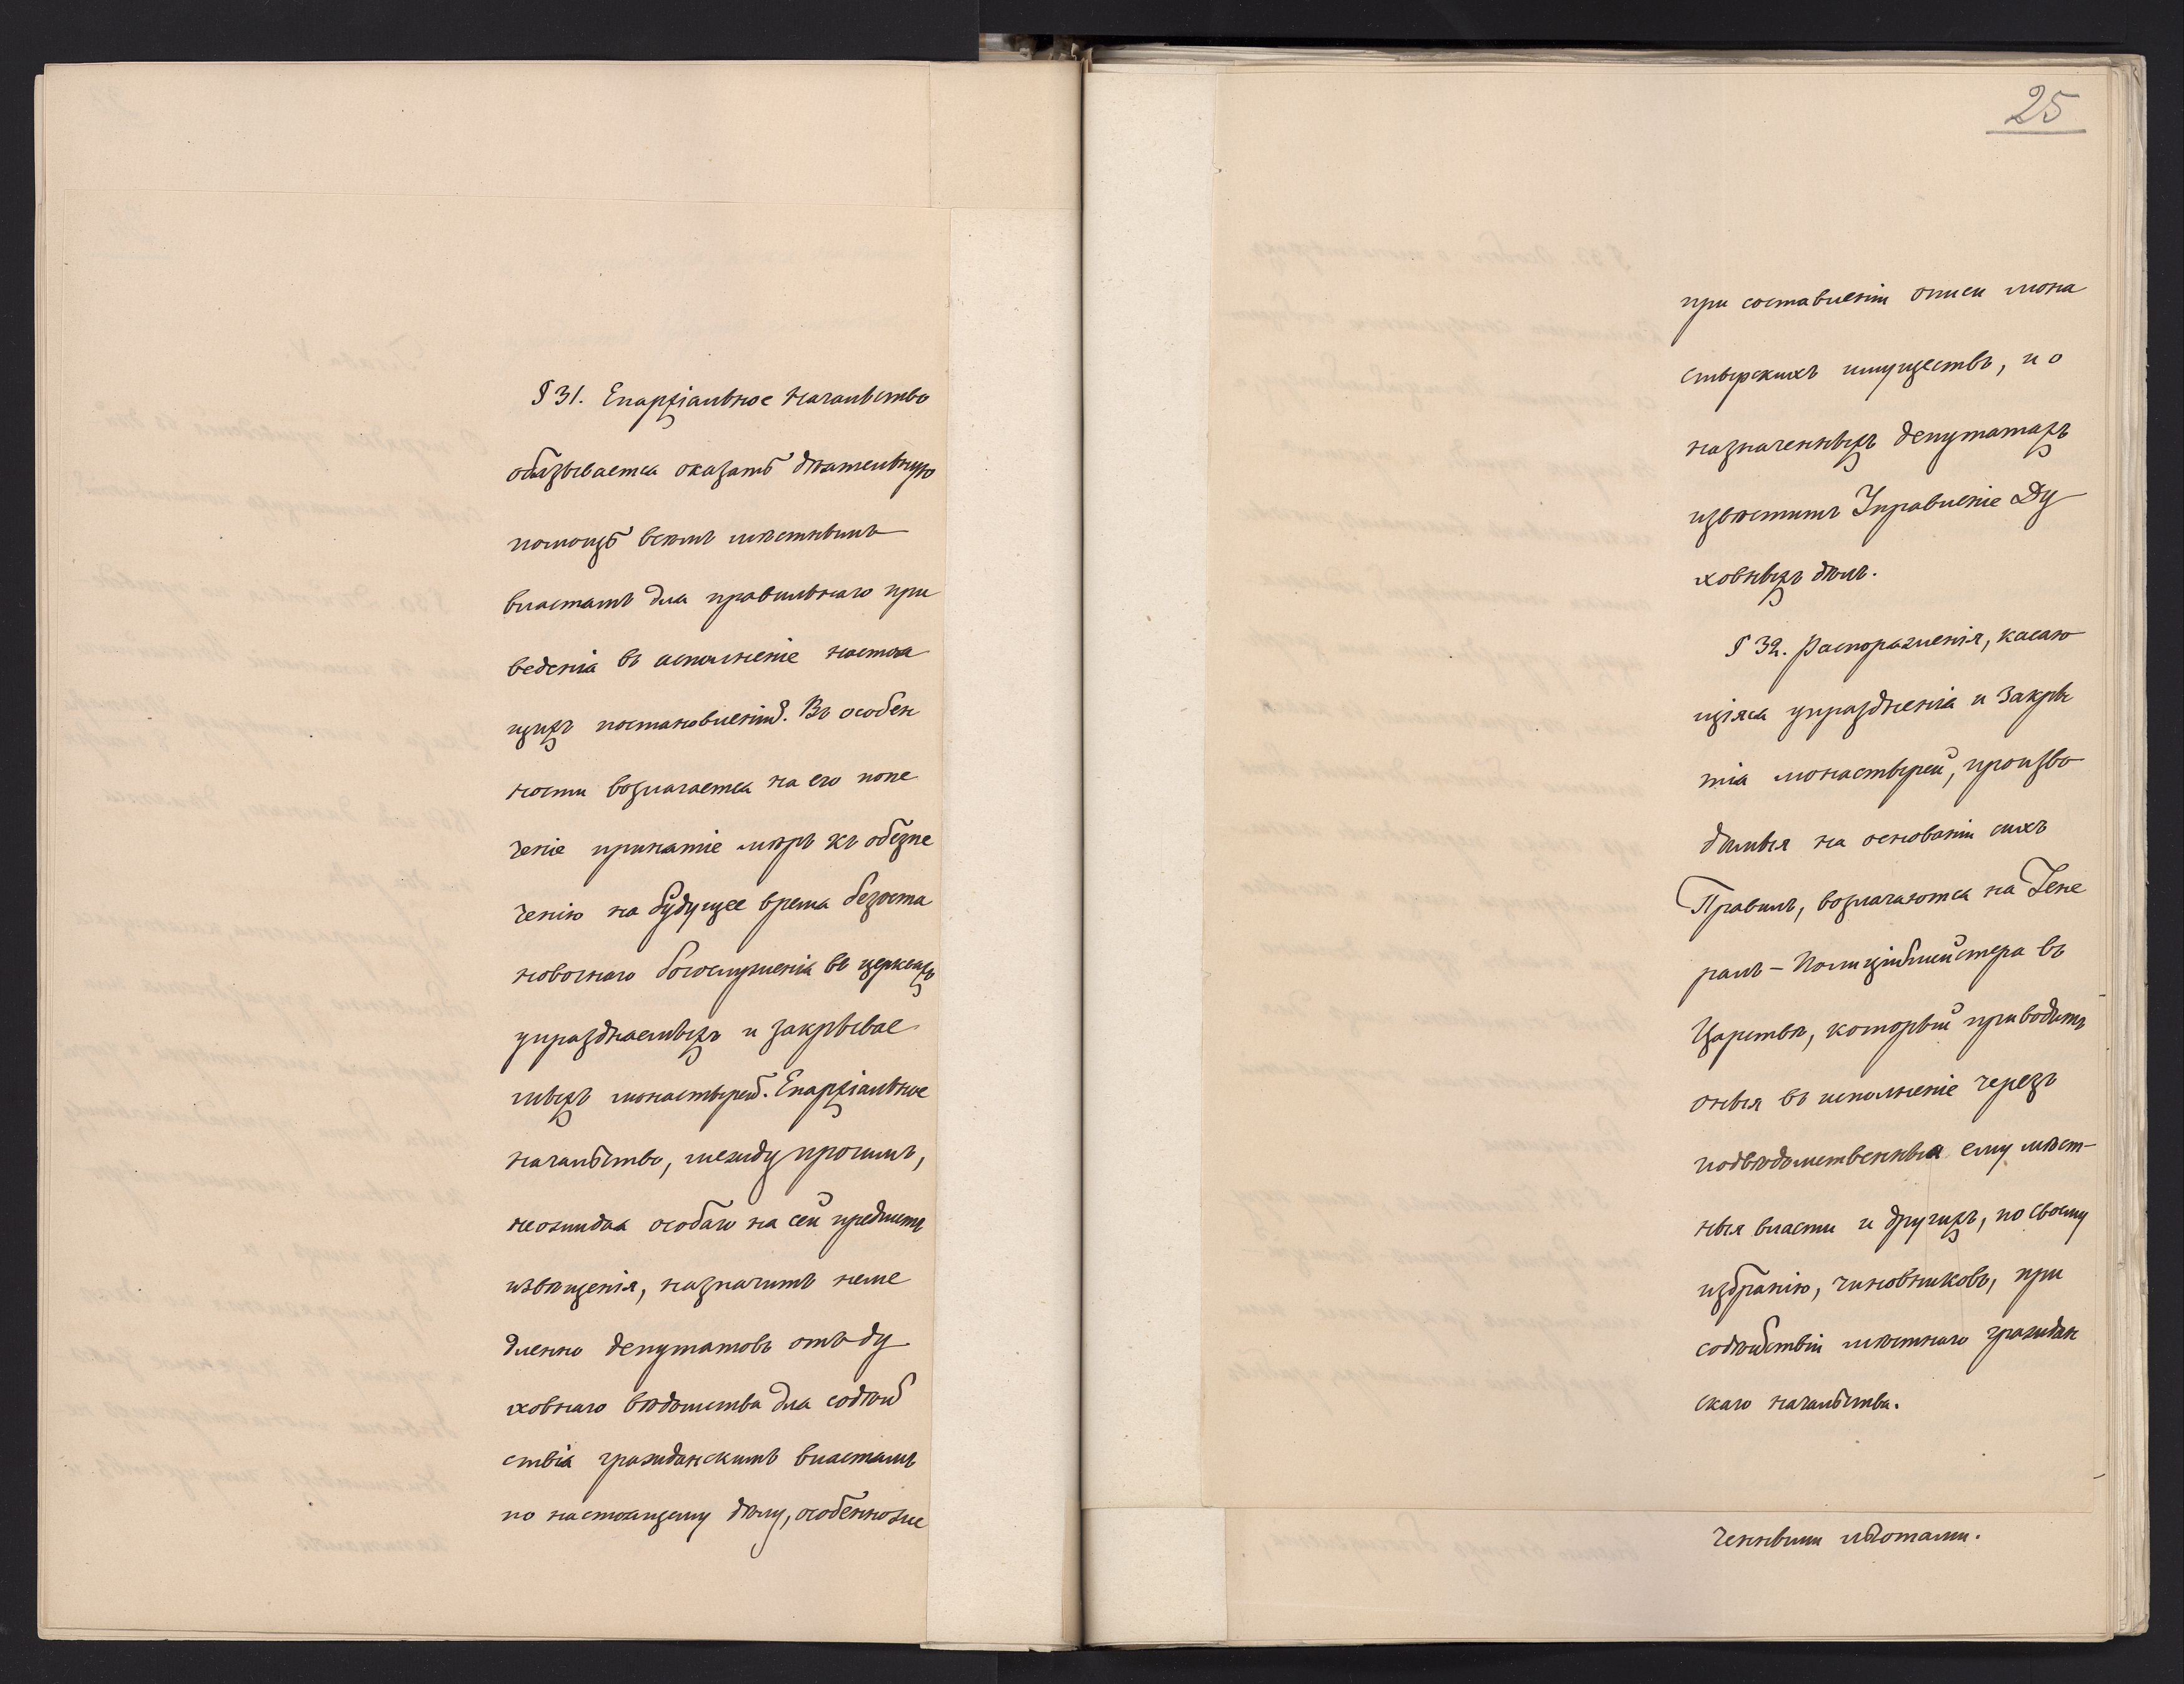 § 31. Епархіальное Начальство
обязывается оказать дѣятельную
помощь всѣмъ мѣстнымъ
властямъ для правильнаго при
веденія въ исполненіе настоя
щихъ постановленій. Въ особен
ности возлагается на его попе
ченіе принятіе мѣръ къ обезпе
ченію на будущее время безоста
новочнаго богослуженія въ церквахъ
упраздняемыхъ и закрывае
мыхъ монастырей. Епархіальное
начальство, между прочимъ,
неожидая особаго на сей предметъ
извѣщенія, назначитъ неме
дленно депутатовъ отъ ду
ховнаго вѣдомства для содѣй
ствія гражданскимъ властямъ
по настоящему дѣлу, особенно же
25
при составленіи описи мона
стырскихъ имуществъ, и о
назначенныхъ депутатахъ
извѣститъ Управленіе Ду
ховныхъ дѣлъ.
§ 32. Распоряженія, касаю
щіяся упраздненія и закры
тія монастырей, произво
димыя на основаніи сихъ
Правилъ, возлагаются на Гене
ралъ-Полиціймейстера въ
Царствѣ, который приводитъ
оныя въ исполненіе чрезъ
подвѣдомственныя ему мѣст-
ныя власти и другихъ, по своему
избранію, чиновниковъ, при
содѣйствіи мѣстнаго граждан
скаго начальства.
ченными льготами.